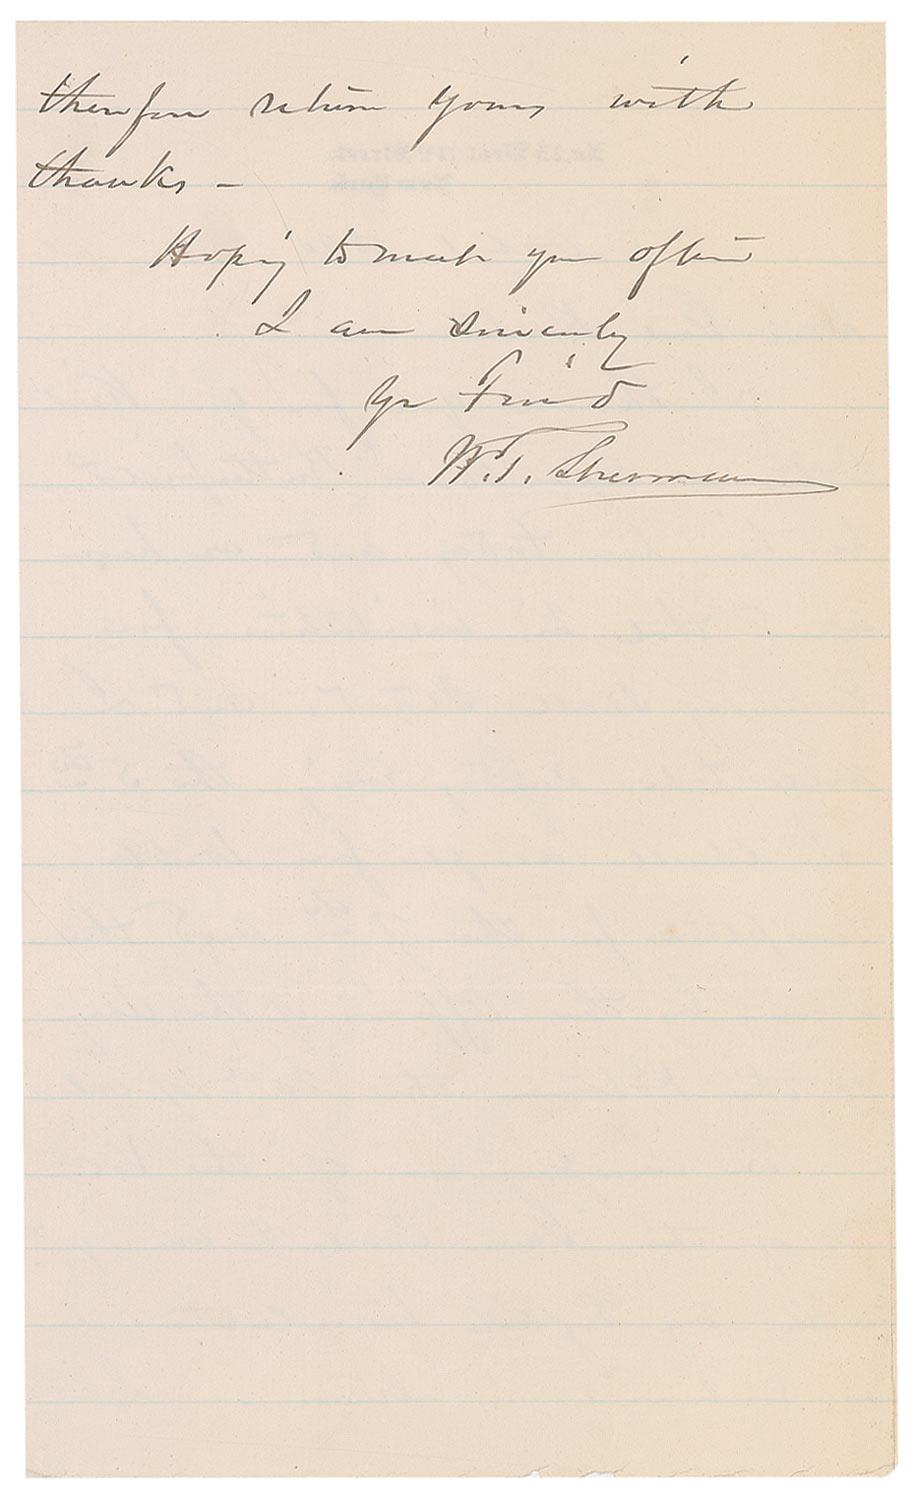 therefore return yours with
thanks -
Hoping to meet you often
I am sincerely
Yr Friend
W.T. Sherman